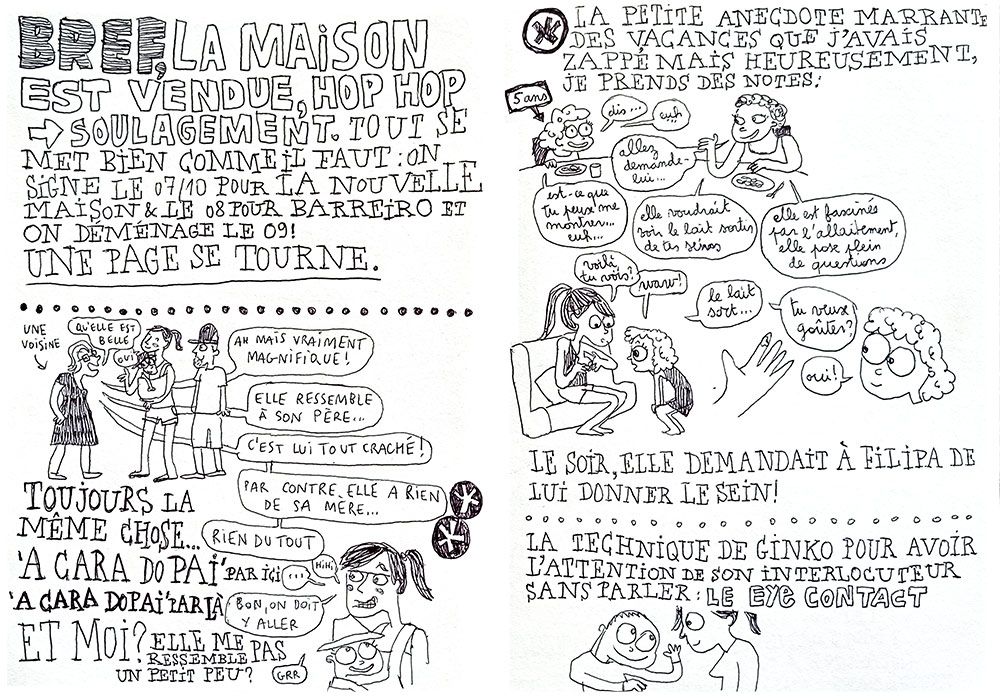 BREF, LA MAISON
EST VENDUE, HOP HOP
→ SOULAGEMENT. TOUT SE
MET BIEN COMME IL FAUT : ON
SIGNE LE 07/10 POUR LA NOUVELLE
MAISON & LE 08 POUR BARREIRO ET
ON DÉMÉNAGE LE 09!
UNE PAGE SE TOURNE.
UNE
VOISINE
QU'ELLE EST
BELLE
OUI
AH MAIS VRAIMENT
MAGNIFIQUE!
ELLE RESSEMBLE
À SON PÈRE...
C'EST LUI TOUT CRACHÉ!
PAR CONTRE ELLE A RIEN
DE SA MÈRE...
RIEN DU TOUT
TOUJOURS LA
MÊME CHOSE...
'A CARA DO PAI' PAR ICI
'A CARA DO PAI' PAR LÀ
ET MOI? ELLE ME
RESSEMBLE PAS
UN PETIT PEU?
...
HiHi
BON, ON DOIT
Y ALLER
GRR
LA PETITE ANECDOTE MARRANTE
DES VACANCES QUE J'AVAIS
ZAPPÉ MAIS HEUREUSEMENT,
JE PRENDS DES NOTES:
5 ans
dis...
euh
allez
demande-
lui...
est-ce que
tu peux me
montrer...
euh...
elle voudrait
voir le lait sortir
de tes seins
elle est fascinée
par l'allaitement,
elle pose plein
de questions
voilà,
tu vois?
waw!
le lait
sort...
tu veux
goûter?
oui!
LE SOIR, ELLE DEMANDAIT À FILIPA DE
LUI DONNER LE SEIN!
LA TECHNIQUE DE GINKO POUR AVOIR
L'ATTENTION DE SON INTERLOCUTEUR
SANS PARLER: LE EYE CONTACT